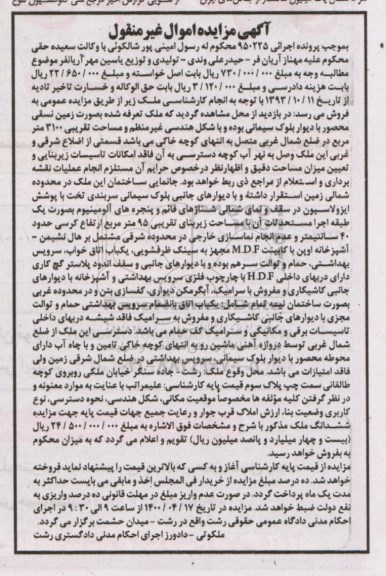 آگهی مزایده اموال غیر منقول
بموجب پرونده اجرائی ۹۵۰۲۲۵ محکوم له رسول امینی پور شالکوئی با وکالت سعیده حقی
محکوم علیه مهناز آریان فر - حیدرعلی وندی - تولیدی و توزیع یاسین مهر آریافر موضوع
مطالبه وجه به مبلغ ۷۳۰/۰۰۰/۰۰۰ ریال بابت اصل خواسته و مبلغ ۲۲/۶۵۰/۰۰۰ ریال
بابت هزینه دادرسی و مبلغ ۳/۱۲۰/۰۰۰ ریال بابت حق الوکاله و خسارت تاخیر تادیه
از تاریخ ۱۳۹۳/۱۰/۱۱ با توجه به انجام کارشناسی ملک زیر از طریق مزایده عمومی به
فروش می رسد: در بازدید از محل مشاهده گردید که ملک تعرفه شده بصورت زمین نسقی
محصور با دیوار بلوک سیمانی بوده و با شکل هندسی غیرمنظم و مساحت تقریبی ۳۱۰۰ متر
مربع در ضلع شمال غربی متصل به انتهای کوچه خاکی می باشد قسمتی از اضلاع شرقی و
غربی این ملک وصل به نهر آب کوچه دسترسی به آن فاقد امکانات تاسیسات زیربنایی و
تعیین میزان مساحت دقیق و اظهارنظر درخصوص حرایم آن مستلزم انجام عملیات نقشه
برداری و استعلام از مراجع ذی ربط خواهد بود. جانمایی ساختمان این ملک در محدوده
شمالی زمین استقرار داشته و با دیوارهای جانبی بلوک سیمانی سربندی تخت با پوشش
ایزولاسیون در سقف و نمای شمالی شناژهای قائم و پنجره های آلومینیوم بصورت یک
طبقه اجرا مستحدثات آن با مساحت زیربنای تقریبی ۹۵ متر مربع ارتفاع کرسی حدود
۴۰ سانتیمتر و عدم انجام نماسازی خارجی در محدوده شرقی مشتمل بر هال نشیمن -
آشپزخانه اوپن با کابینت M.D.F مجهز به سینک ظرفشویی، یکباب اتاق خواب، سرویس
بهداشتی، حمام و توالت سرهم بوده و با دیوارهای جانبی و سقف اندود پلاستر گچ کاری
دارای دربهای داخلی H.D.F با چارچوب فلزی سرویس بهداشتی و آشپزخانه با دیوارهای
جانبی کاشیکاری و مفروش با سرامیک، آبگرمکن دیواری، کفسازی بتن و در محدوده غربی
بصورت ساختمان نیمه تمام شامل: یکباب اتاق بانضمام سرویس بهداشتی حمام و توالت
مجزی با دیوارهای جانبی کاشیکاری و مفروش به سرامیک فاقد شیشه دربهای داخلی
تاسیسات برقی و مکانیکی و سرامیک کف حمام می باشد. دسترسی این ملک از ضلع
شمال غربی توسط دروازه آهنی ماشین رو به انتهای کوچه خاکی تامین و با چاه آب دارای
محوطه محصور با دیوار بلوک سیمانی، سرویس بهداشتی در ضلع شمال شرقی زمین ولی
فاقد امتیازات می باشد. محل وقوع ملک: رشت - جاده سنگر خیابان ملکی روبروی کوچه
طالقانی سمت چپ پلاک سوم قیمت پایه کارشناسی: علیمراتب با عنایت به موارد معنونه و
در نظر گرفتن کلیه مؤلفه ها مخصوصاً موقعیت مکانی، شکل هندسی، نحوه دسترسی، نوع
کاربری وضعیت بنا، ارزش املاک قرب جوار و رعایت جمیع جهات قیمت پایه جهت مزایده
ششدانگ ملک مذکور با شرح و مشخصات فوق الاشاره به مبلغ ۲۴/۵۰۰/۰۰۰/۰۰۰ ریال
(بیست و چهار میلیارد و پانصد میلیون ریال) تقویم و اعلام می گردد که به میزان محکوم
به بفروش خواهد رسید.
مزایده از قیمت پایه کارشناسی آغاز و به کسی که بالاترین قیمت را پیشنهاد نماید فروخته
خواهد شد. ده درصد مبلغ مزایده از خریدار فی المجلس اخذ و مابقی می بایست حداکثر به
مدت یک ماه پرداخت گردد. در صورت عدم واریز مبلغ در مهلت قانونی ده درصد واریزی به
نفع دولت ضبط خواهد شد. مزایده در تاریخ ۱۴۰۰/۰۴/۱۷ از ساعت ۹ الی ۹:۳۰ در اجرای
احکام مدنی دادگاه عمومی حقوقی رشت واقع در رشت - میدان حشمت برگزار می گردد.
ملکوتی - دادورز اجرای احکام مدنی دادگستری رشت